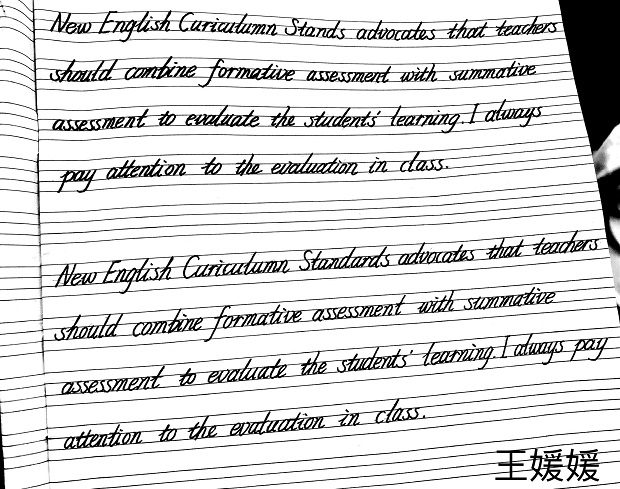 New English Curiculumn Stands advocates that teachers
should combine formative assessment with summative
assessment to evaluate the students' learning. I always
pay attention to the evaluation in class.
New English Curiculumn Standards advocates that teachers
should combine formative assessment with summative
assessment to evaluate the students' learning. I always pay
attention to the evaluation in class.
王媛媛